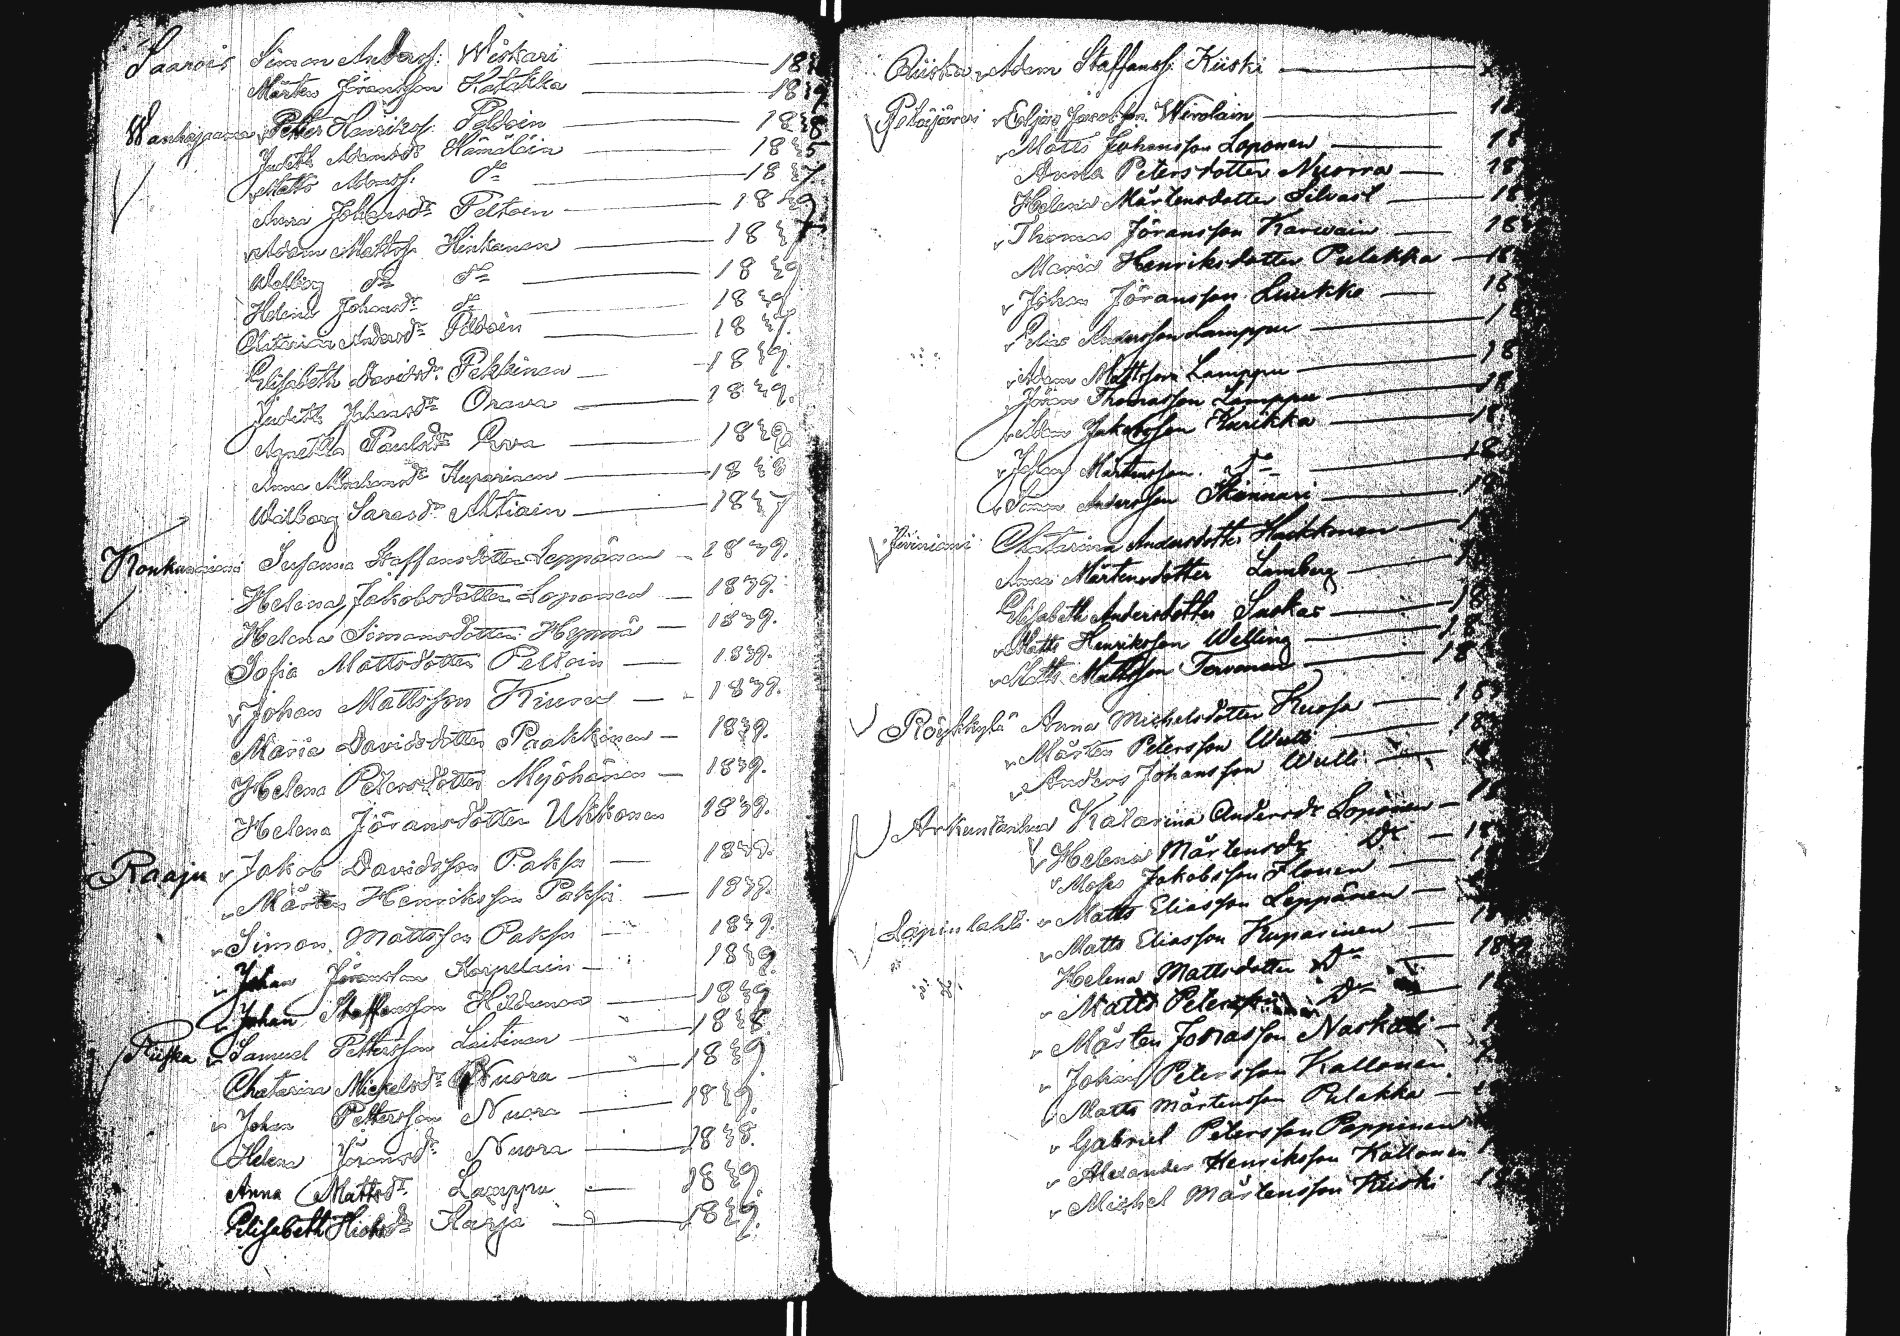 Saarois Simon Anderss: Wiskari 18
Mårten Jöransson Katakka 1839
Wanhajaama Petter Henrikss: Peldoin 1838
Judith Adamsdr Hämäläin 1835
Matts Adamss. Do 1837
Anna Johansdr Peltoin 1839
Adam Mattss. Hinkanen 183
Walborg Dr Do 1839
Helena Johansdr Do 1839
Chatarina Andersdr Peldoin 1837.
Elisabeth Davidsdr Pekkinen 1839.
Judith Johansdr Orava 1839.
Agnetha Paulsdr Orva 1839
Anna Abrahamsdr Kuparinen 1838
Walborg Larsdr Ahtiain 1837
Konkaniemi Susanna Staffansdotter Leppänen 1839.
Helena Jakobsdotter Loponen 1839.
Helena Simonsdotter Hyppnä 1839.
Sofia Mattsdotter Peltoin 1839.
Johan Mattsson Kiuru 1839.
Maria Davidsdotter Paakkinen 1839.
Helena Petersdotter Myöhänen 1839.
Helena Jöransdotter Ukkonen 1839.
Raaju Jakob Davidsson Paksu 1839.
Mårten Henriksson Paksu 1839.
Simon Mattsson Paksu 1839.
Johan Jöransson Karpelain 1839.
Johan Staffansson Hildunen 1839
Riiska Samuel Pettersson Laitinen 1838
Chatarina Michelsdr Nuora 1839.
Johan Pettersson Nuora 1839.
Helena Jöransdr Nuora 1838.
Anna Mattsdr Lamppu 1839.
Elisabeth Hichsdr Harja 1839.
Riiska Adam Staffanss: Kiiski
Petäjärvi Eljas Jacobsson Wirolain 18
Matts Johansson Loponen 18
Anna Petersdotter Nuorra 18
Helena Mårtensdotter Silvast 18
Thomas Jöransson Karvain 18
Maria Henriksdotter Pulakka 18
Johan Jöransson Luukko 18
Elias Andersson Lamppu 1
Adam Mattsson Lamppu 18
Jöran Thomasson Lamppu 18
Adam Jakobsson Kurikka 18
Johan Mårtensson Do 18
Simon Andersson Skinnari 18
Chatarina Andersdotter Heikkonen 1
Anna Mårtensdotter Lamberg 1
Elisabeth Andersdotter Saskas 18
Matts Henriksson Welling 18
Matts Mattsson Torvonen 18
Röykkylä Anna Michelsdotter Kuosa 183
Mårten Petersson Wulli 18
Anders Johansson Wulli 18
Katarina Andersdr Loponen 18
Helena Mårtensdr Do 18
Moses Jakobsson Ilonen 1
Lapinlahti Matts Eliasson Leppänen
Matts Eliasson Kuparinen 18
Helena Mattsdotter Do 1839
Matts Petersson Do 18
Mårten Jonasson Naskali 1
Johan Petersson Kallonen
Matts Mårtensson Pulakka
Gabriel Petersson Poppinen
Alexander Henriksson Kallonen 1
Michel Mårtensson Kiiski 18